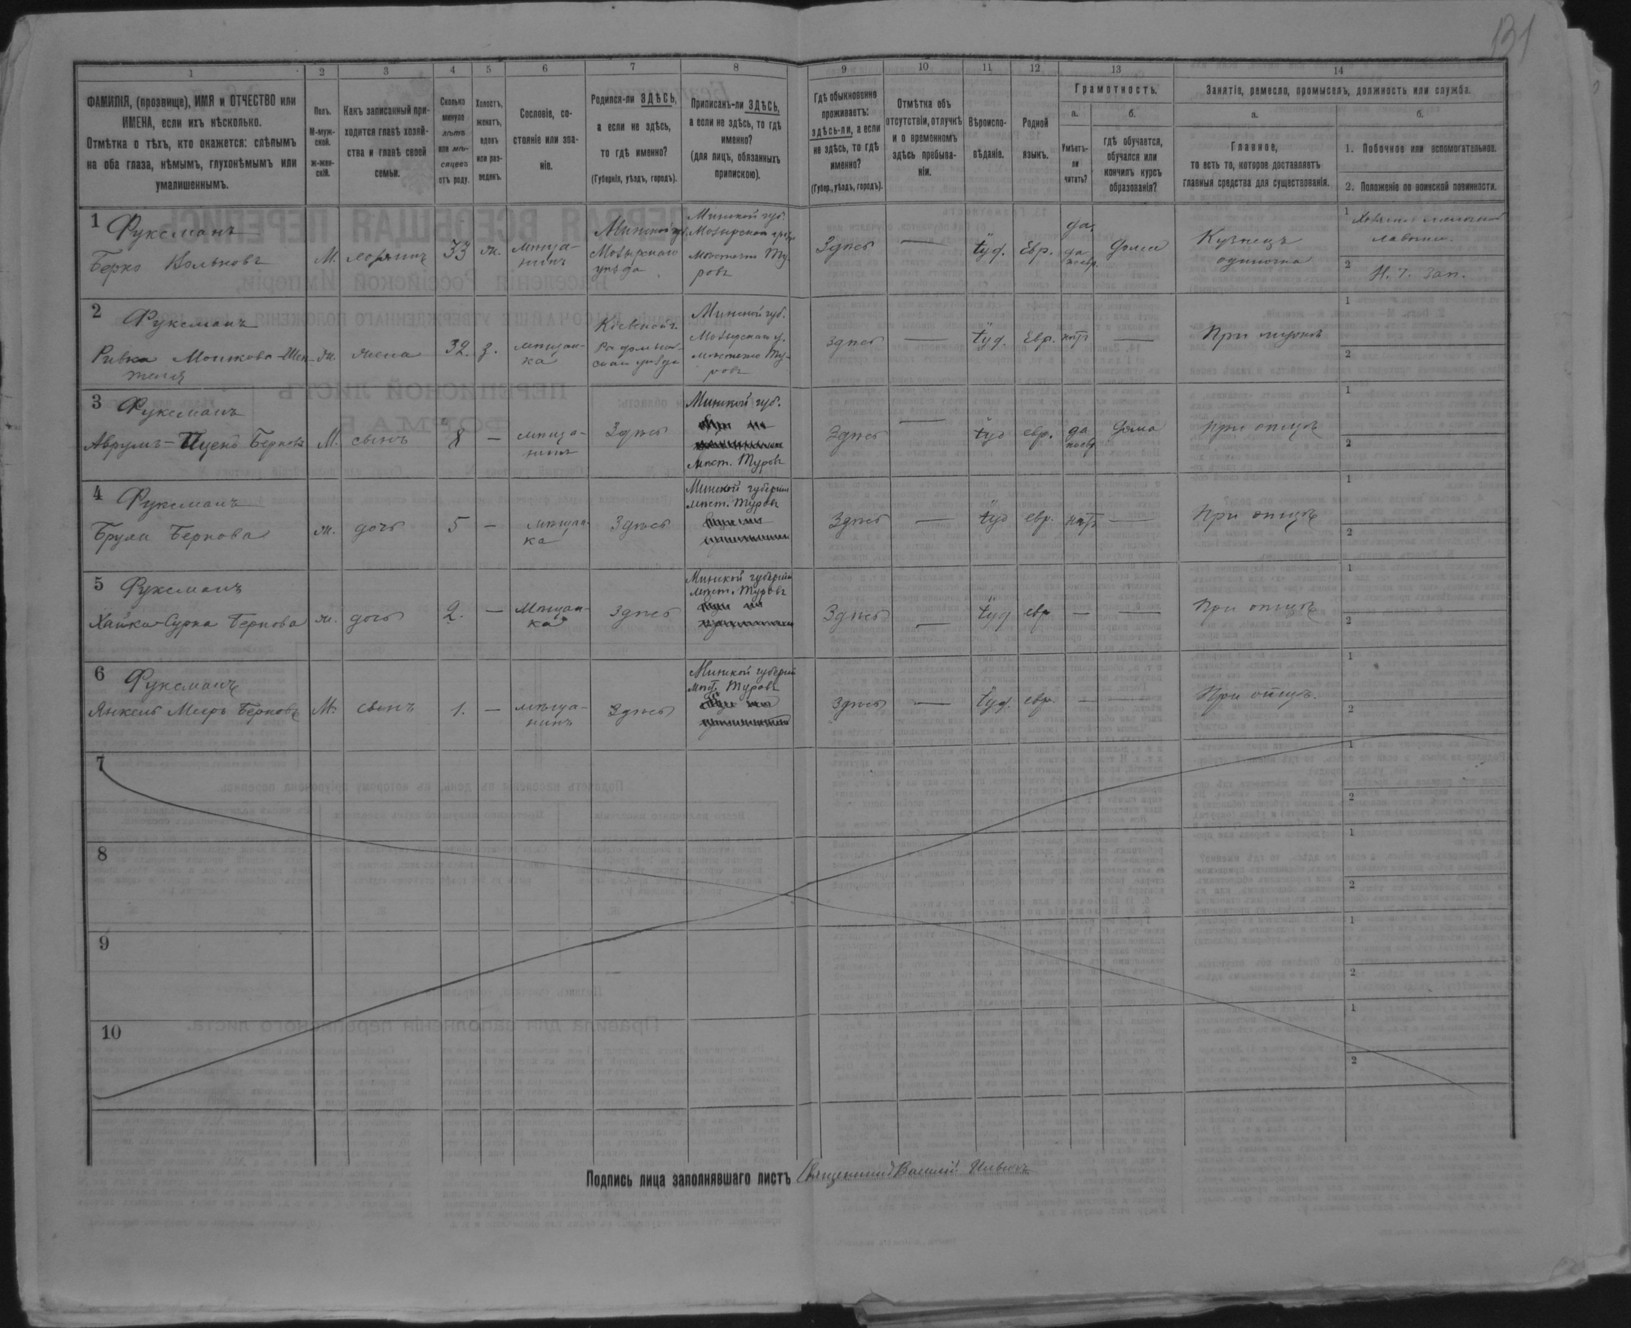 131
1
2
3
4
5
6
7
8
9
10
11
12
13
14
ФАМИЛІЯ, (прозвище), ИМЯ и ОТЧЕСТВО или
ИМЕНА, если ихъ нѣсколько.
Отмѣтка о тѣхъ, кто окажется: слѣпымъ
на оба глаза, нѣмымъ, глухонѣмымъ или
умалишеннымъ.
Полъ.
М-муж-
ской.
ж-жен-
скій.
Какъ записанный при-
ходится главѣ хозяй-
ства и главѣ своей
семьи.
Сколько
минуло
лѣтъ
или мѣ-
сяцевъ
отъ роду.
Холостъ,
женатъ,
вдовъ
или раз-
веденъ.
Сословіе, со-
стояніе или зва-
ніе.
Родился-ли ЗДѢСЬ,
а если не здѣсь,
то гдѣ именно?
(Губернія, уѣздъ, городъ).
Приписанъ-ли ЗДѢСЬ,
а если не здѣсь, то гдѣ
именно?
(для лицъ, обязанныхъ
припискою).
Гдѣ обыкновенно
проживаетъ:
здѣсь-ли, а если
не здѣсь, то гдѣ
именно?
(Губер., уѣздъ, городъ).
Отмѣтка объ
отсутствіи, отлучкѣ
и о временномъ
здѣсь пребыва-
ніи.
Вѣроиспо-
вѣданіе.
Родной
языкъ.
Грамотность.
а.
Умѣетъ-
ли
читать?
б.
гдѣ обучается,
обучался или
кончилъ курсъ
образованія?
Занятіе, ремесло, промыселъ, должность или служба.
а.
Главное,
то есть то, которое доставляетъ
главныя средства для существованія.
б.
1. Побочное или вспомогательное.
2. Положеніе по воинской повинности.
1 Фуксманъ
Берко Вольковъ
М.
хозяинъ
33
ж.
мѣща-
нинъ
Минской губ.
Мозырскаго
уѣзда
Минской губ.
Мозырскаго
Мѣстечко Ту-
ровъ
Здѣсь
—
Іуд.
Евр.
да
да
дома
Кузнецъ
одиночка
1
лавочки
2 Н. 7. зап.
2 Фуксманъ
Ривка
ж.
жена
32.
з.
мѣщан-
ка
Кіевской
уѣзда
Минской губ.
Мозырскаго у.
мѣстечко Ту-
ровъ
здѣсь
—
Іуд.
Евр.
нѣтъ
—
При мужѣ
1
2
3 Фуксманъ
Берковъ
М.
сынъ
8
—
мѣща-
нинъ
Здѣсь
Минской губ.
мѣст. Туровъ
Здѣсь
—
Іуд
евр.
да
дома
При отцѣ
1
2
4 Фуксманъ
Беркова
ж.
дочь
5
—
мѣщан-
ка
Здѣсь
Минской губерніи
мѣст. Туровъ
Здѣсь
—
Іуд
евр.
нѣтъ
—
При отцѣ
1
2
5 Фуксманъ
Хайка-Сурка Беркова
ж.
дочь
2.
—
Мѣщан-
ка
Здѣсь
Минской губерніи
мѣст. Туровъ
Здѣсь
—
Іуд
евр
—
—
При отцѣ
1
2
6 Фуксманъ
Янкель Меиръ Берковъ
М.
сынъ
1.
—
мѣща-
нинъ
Здѣсь
Минской губерніи
мѣст. Туровъ
Здѣсь
—
Іуд.
евр.
—
—
При отцѣ.
1
2
7
1
2
8
1
2
9
1
2
10
1
2
Подпись лица заполнявшаго листъ Священникъ Василій